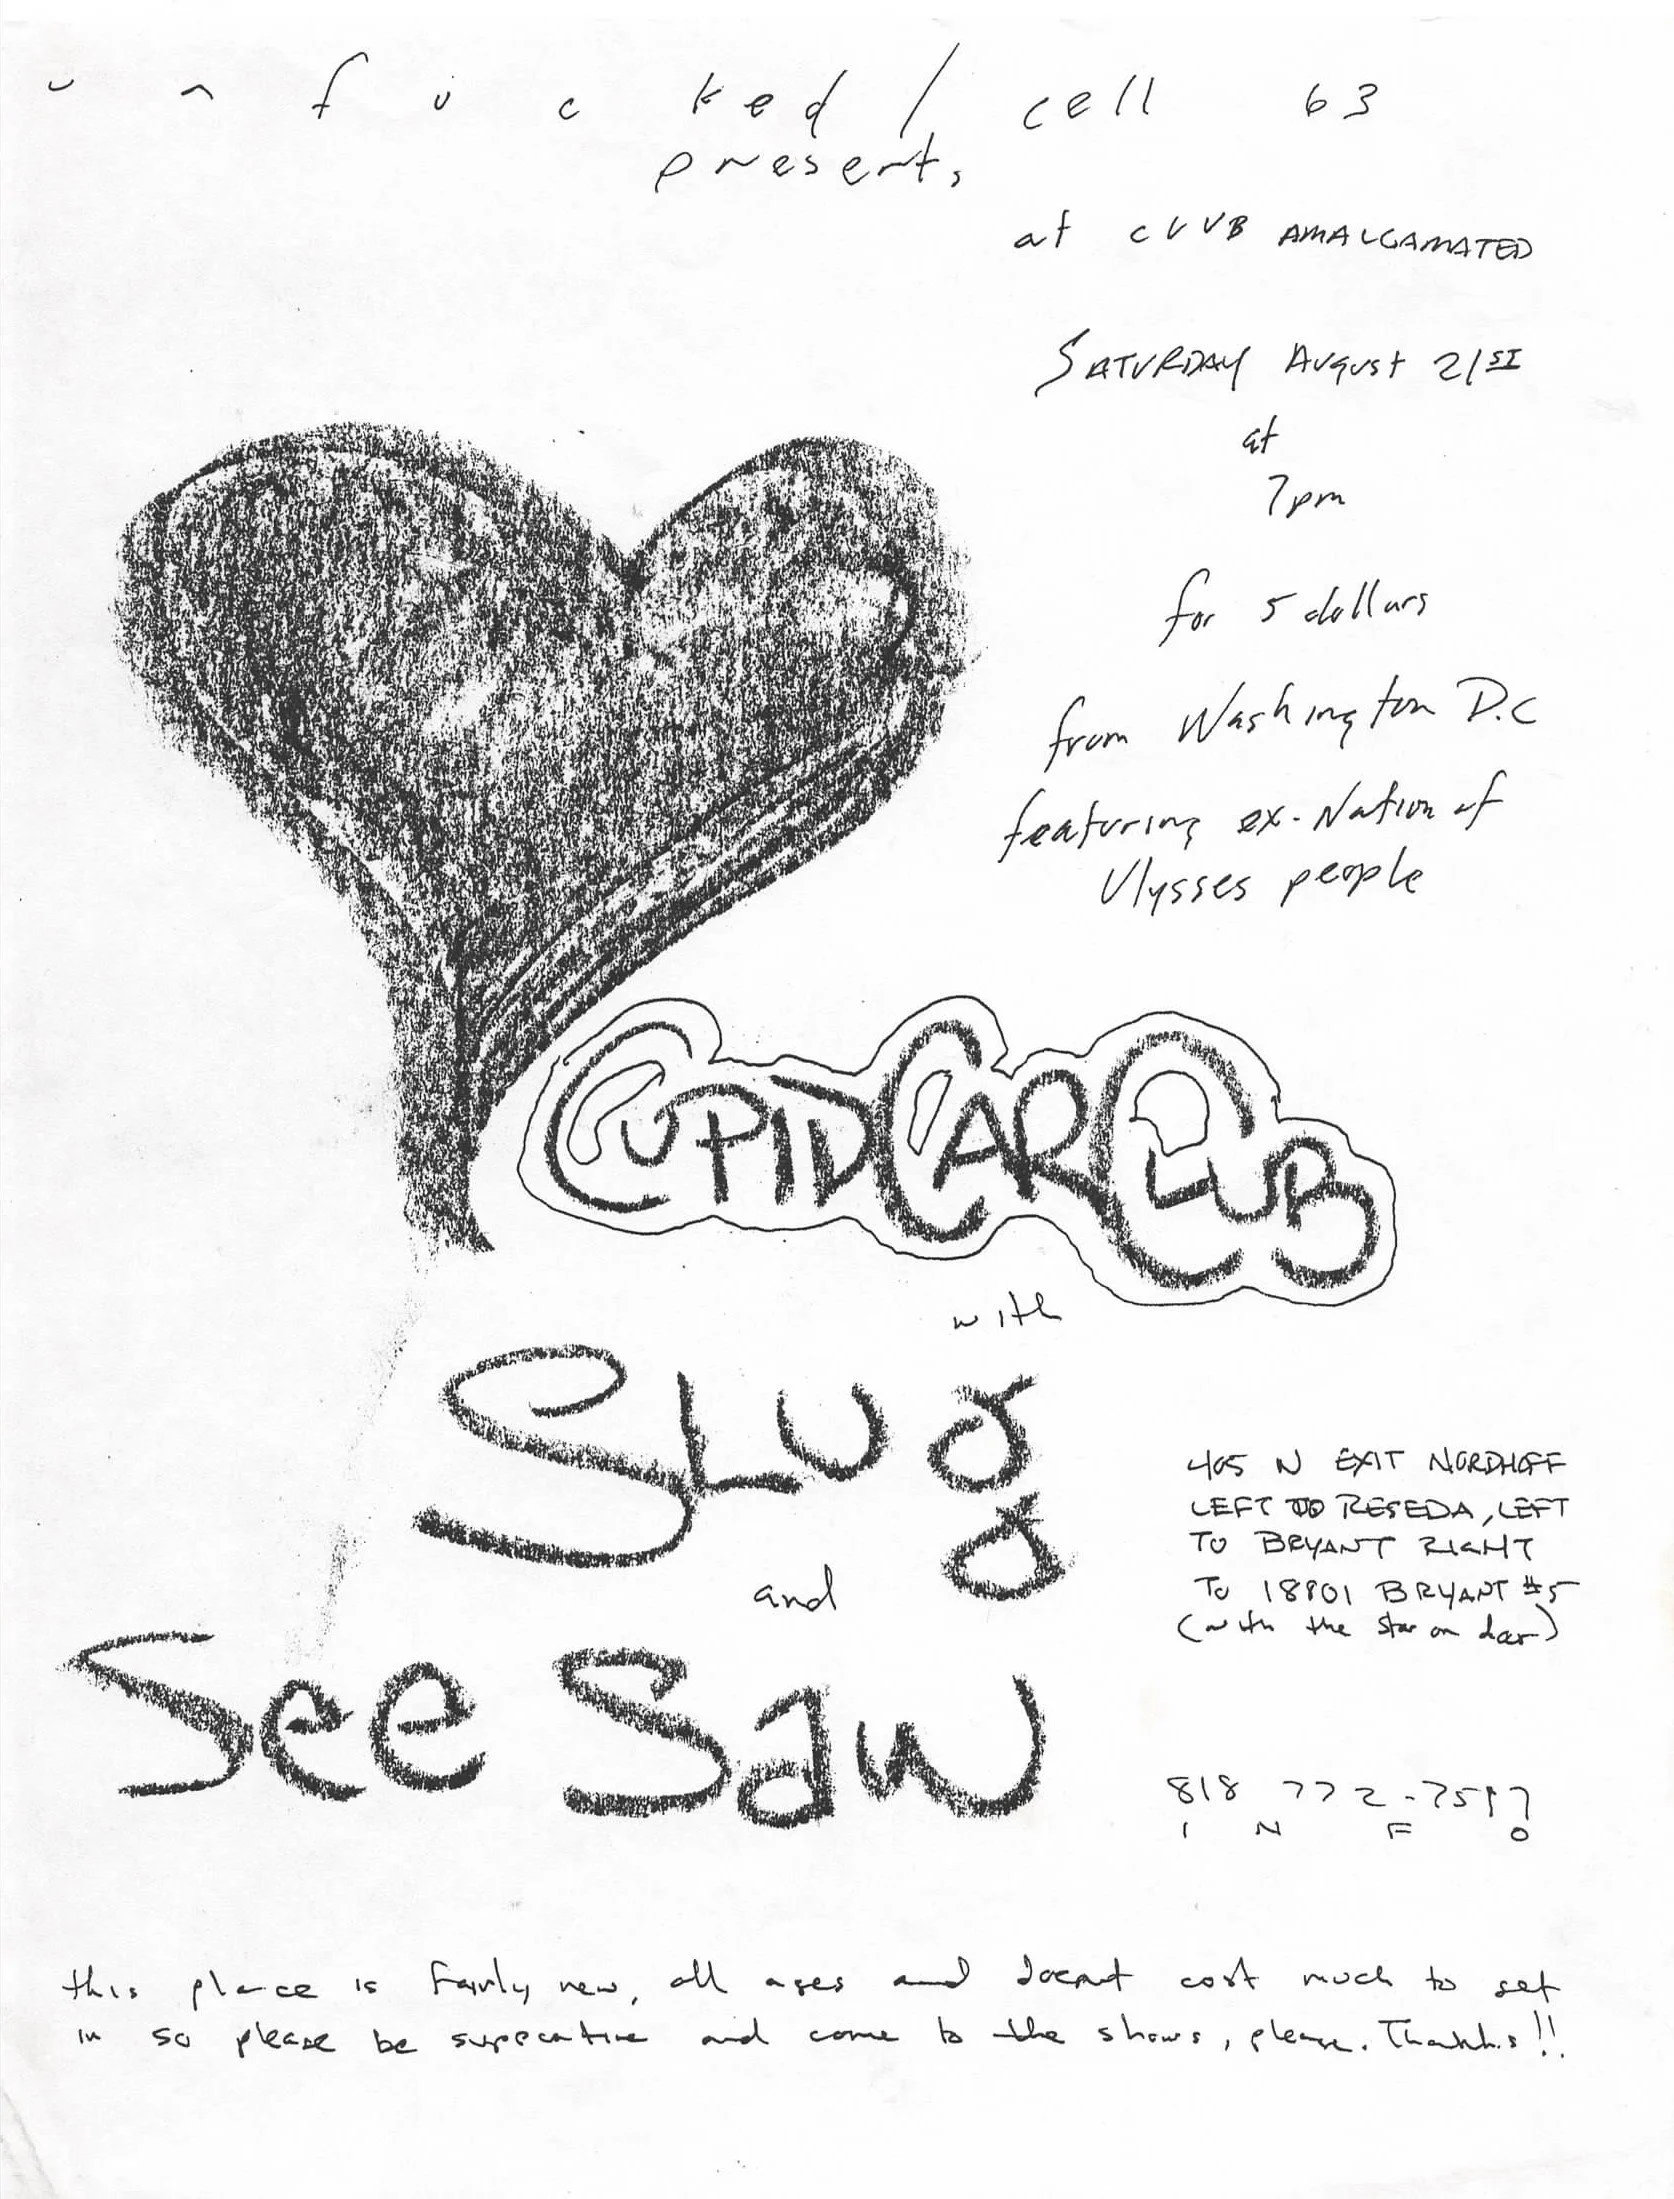 unfucked / cell 63
presents
at CLUB AMALGAMATED
SATURDAY AUGUST 21ST
at
7pm
for 5 dollars
from Washington D.C
featuring ex-Nation of
Ulysses people
CUPID CAR CLUB
with
SLUG
and
See Saw
405 N EXIT NORDHOFF
LEFT TO RESEDA, LEFT
TO BRYANT RIGHT
TO 18901 BRYANT #5
(with the star on door)
818 772-7597
INFO
this place is fairly new, all ages and doesnt cost much to get
in so please be supportive and come to the shows, please. Thanks!!